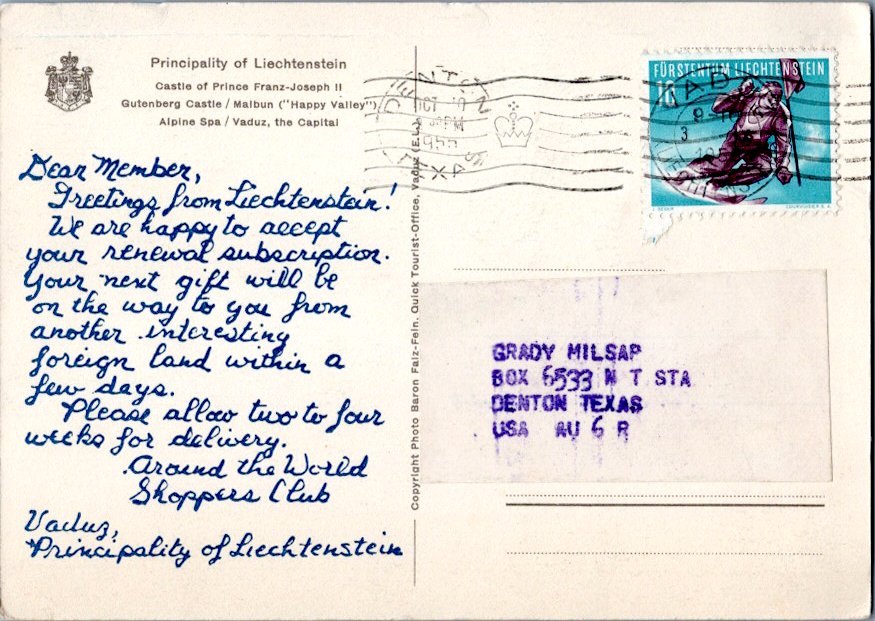 Principality of Liechtenstein
Castle of Prince Franz-Joseph II
Gutenberg Castle / Malbun ("Happy Valley")
Alpine Spa / Vaduz, the Capital
Dear Member,
Greetings from Liechtenstein!
We are happy to accept
your renewal subscription.
Your next gift will be
on the way to you from
another interesting
foreign land within a
few days.
Please allow two to four
weeks for delivery.
Around the World
Shoppers Club
Vaduz,
Principality of Liechtenstein
Copyright Photo Baron Falz-Fein, Quick Tourist-Office, Vaduz
DENTON
OCT
PM
1955
TEXAS
FÜRSTENTUM LIECHTENSTEIN
10
GRADY MILSAP
BOX 6533 N T STA
DENTON TEXAS
USA AU 6 R